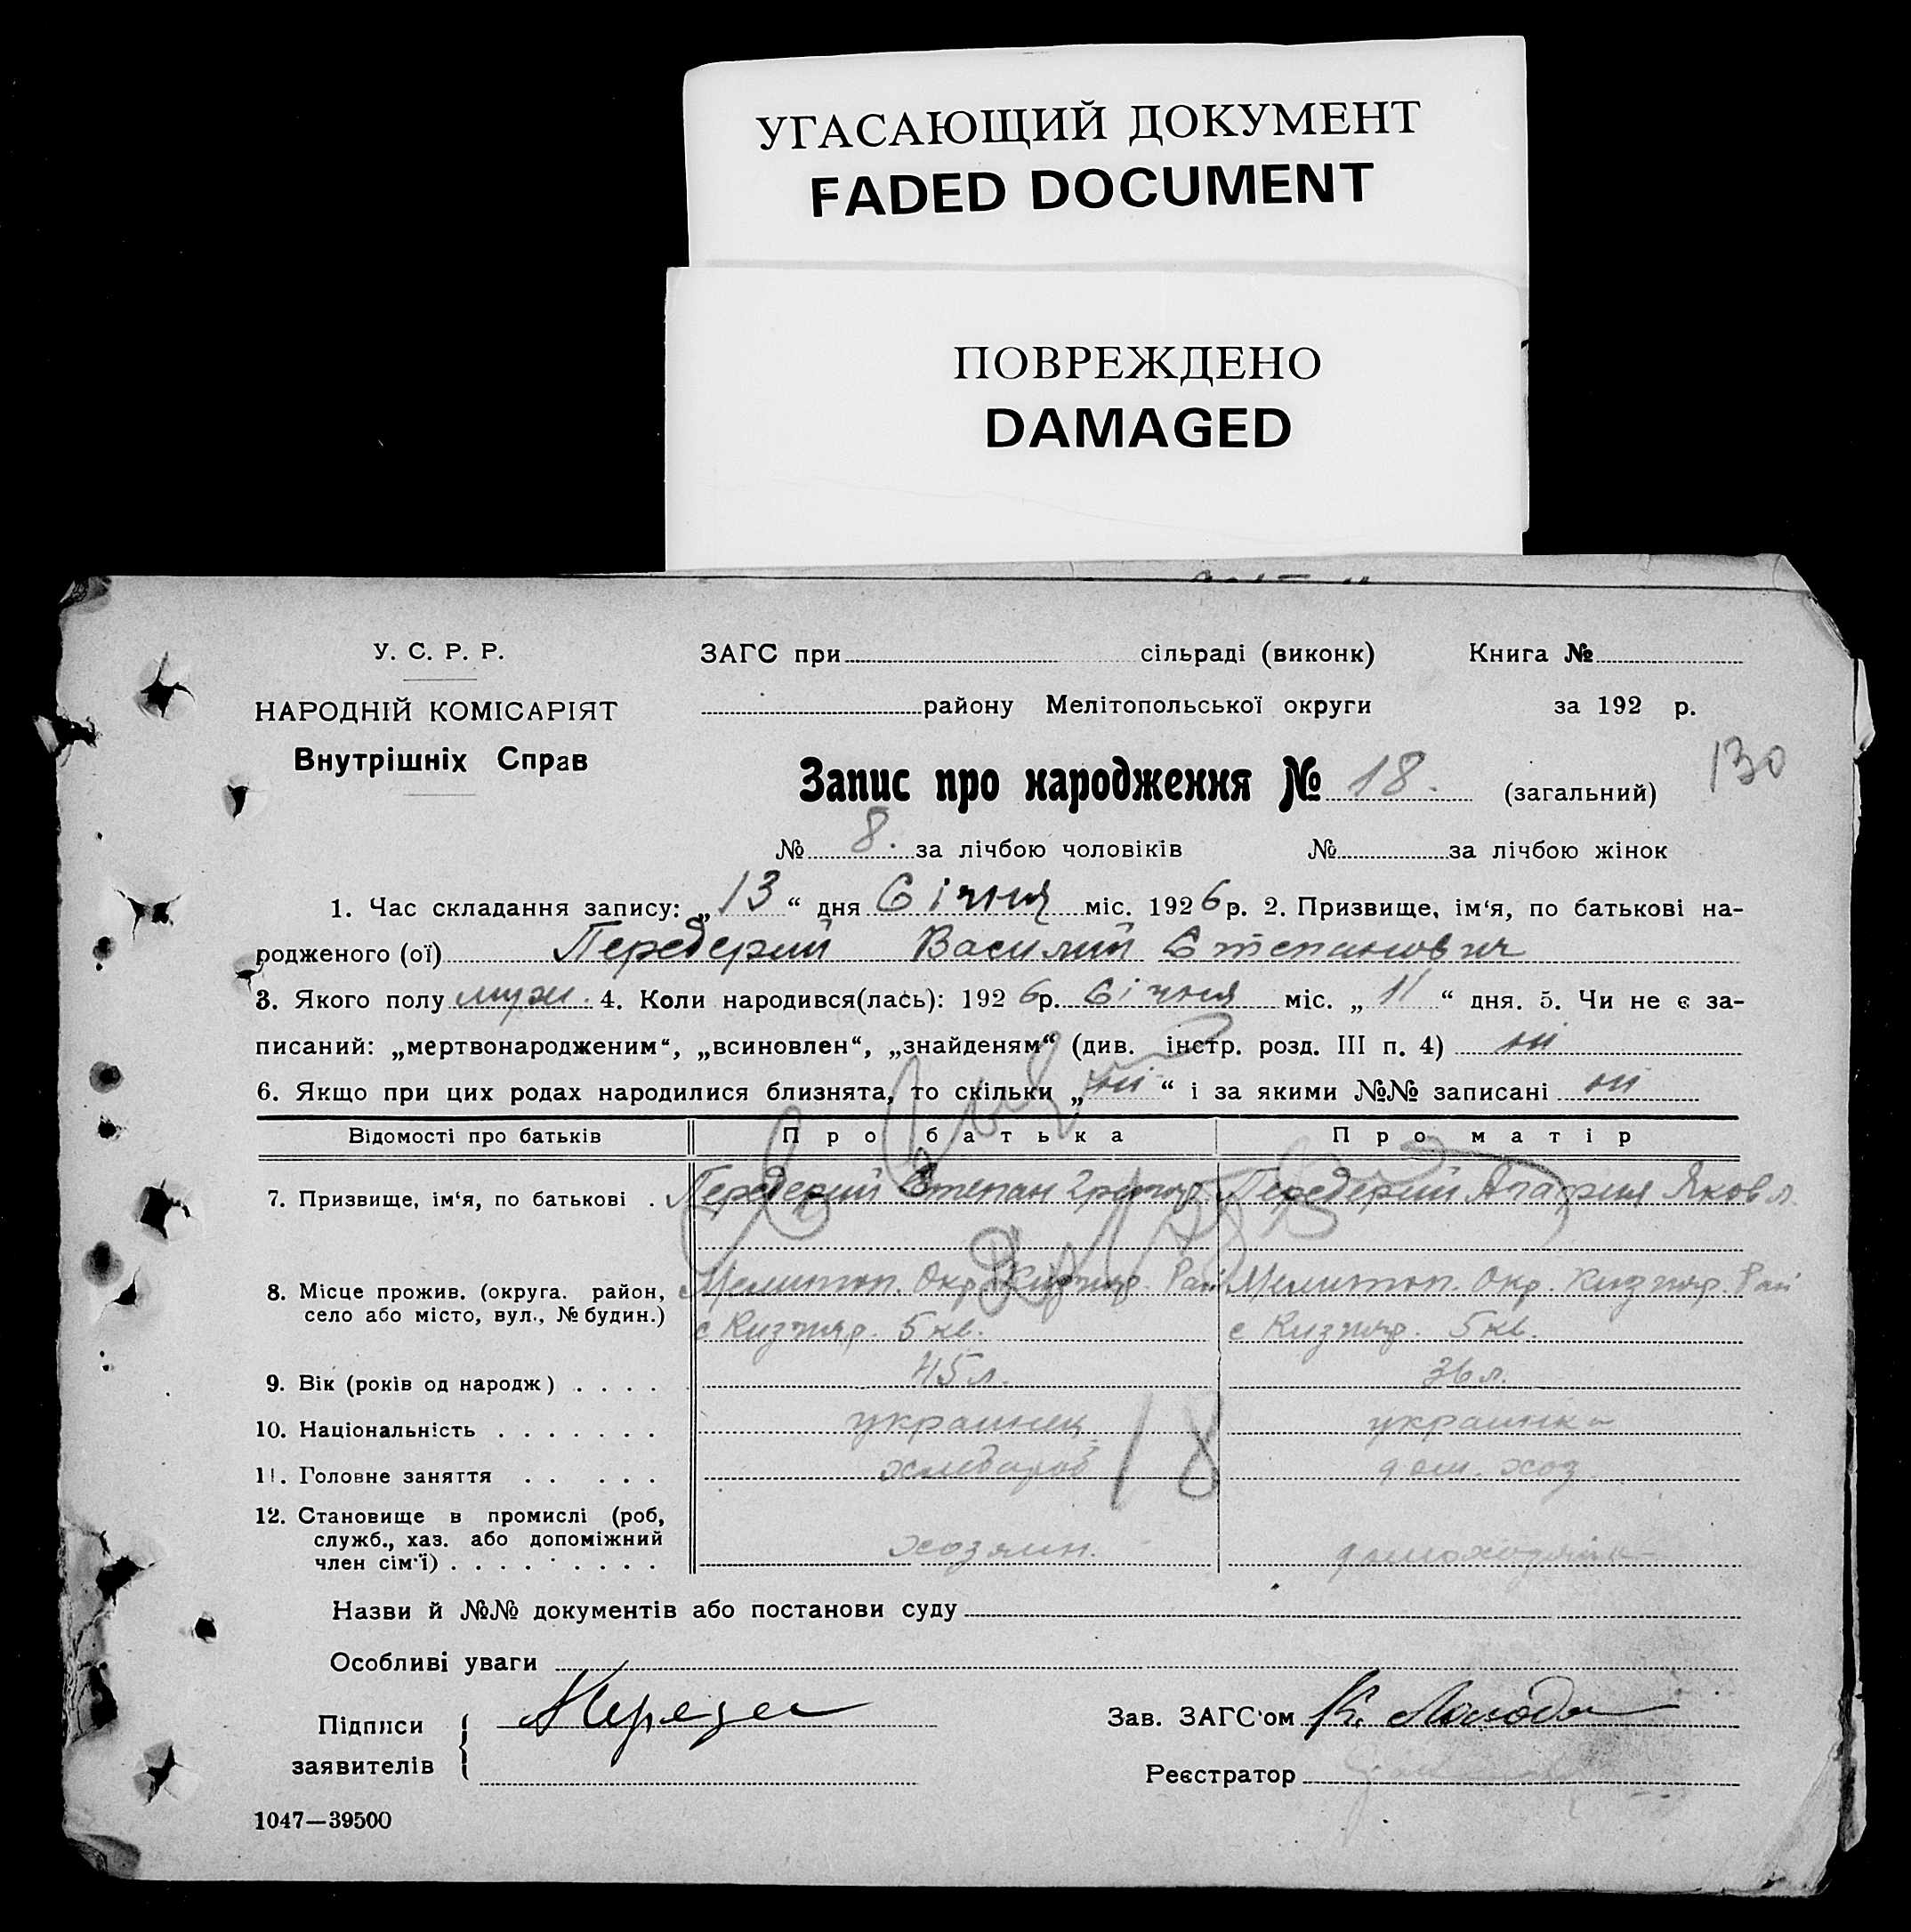 УГАСАЮЩИЙ ДОКУМЕНТ
FADED DOCUMENT
ПОВРЕЖДЕНО
DAMAGED
У. С. Р. Р.
НАРОДНІЙ КОМІСАРІЯТ
Внутрішніх Справ
ЗАГС при сільраді (виконк) Книга №
району Мелітопольської округи за 192 р.
130
Запис про народження № 18. (загальний)
№ 8. за лічбою чоловіків № за лічбою жінок
1. Час складання запису: „13“ дня Січня міс. 1926 р. 2. Призвище, ім‘я, по батькові на-
родженого (ої) Передерий Василий Степанович
3. Якого полу муж. 4. Коли народився(лась): 1926 р. Січня міс. „11“ дня. 5. Чи не є за-
писаний: „мертвонародженим“, „всиновлен“, „знайденям“ (див. інстр. розд. III п. 4) ні
6. Якщо при цих родах народилися близнята, то скільки „ні“ і за якими №№ записані ні
Відомості про батьків Про батька Про матір
7. Призвище, ім‘я, по батькові . Передерий Степан Григор. Передерий Агафия Яковл.
8. Місце прожив. (округа. район, Мелитоп. Окр. Кизияр. Рай Мелитоп. Окр. Кизияр. Рай
село або місто, вул., № будин.) с Кизияр. 5 кв. с Кизияр. 5 кв.
9. Вік (років од народж) . . . . 45 л. 36 л.
10. Національність . . . . . . . украинец украинка
11. Головне заняття . . . . . хлебороб дом. хоз
18
12. Становище в промислі (роб,
служб., хаз. або допоміжний
член сім‘ї) . . . . . . . . . хозяин. домохозяйка
Назви й №№ документів або постанови суду
Особливі уваги
Підписи
заявителів
Зав. ЗАГС‘ом
Реєстратор
1047—39500